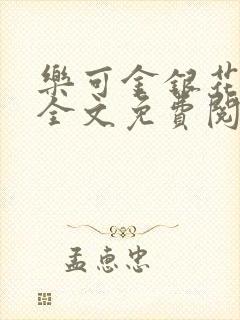 樂可金銀花
全文免費閱
孟惠忠